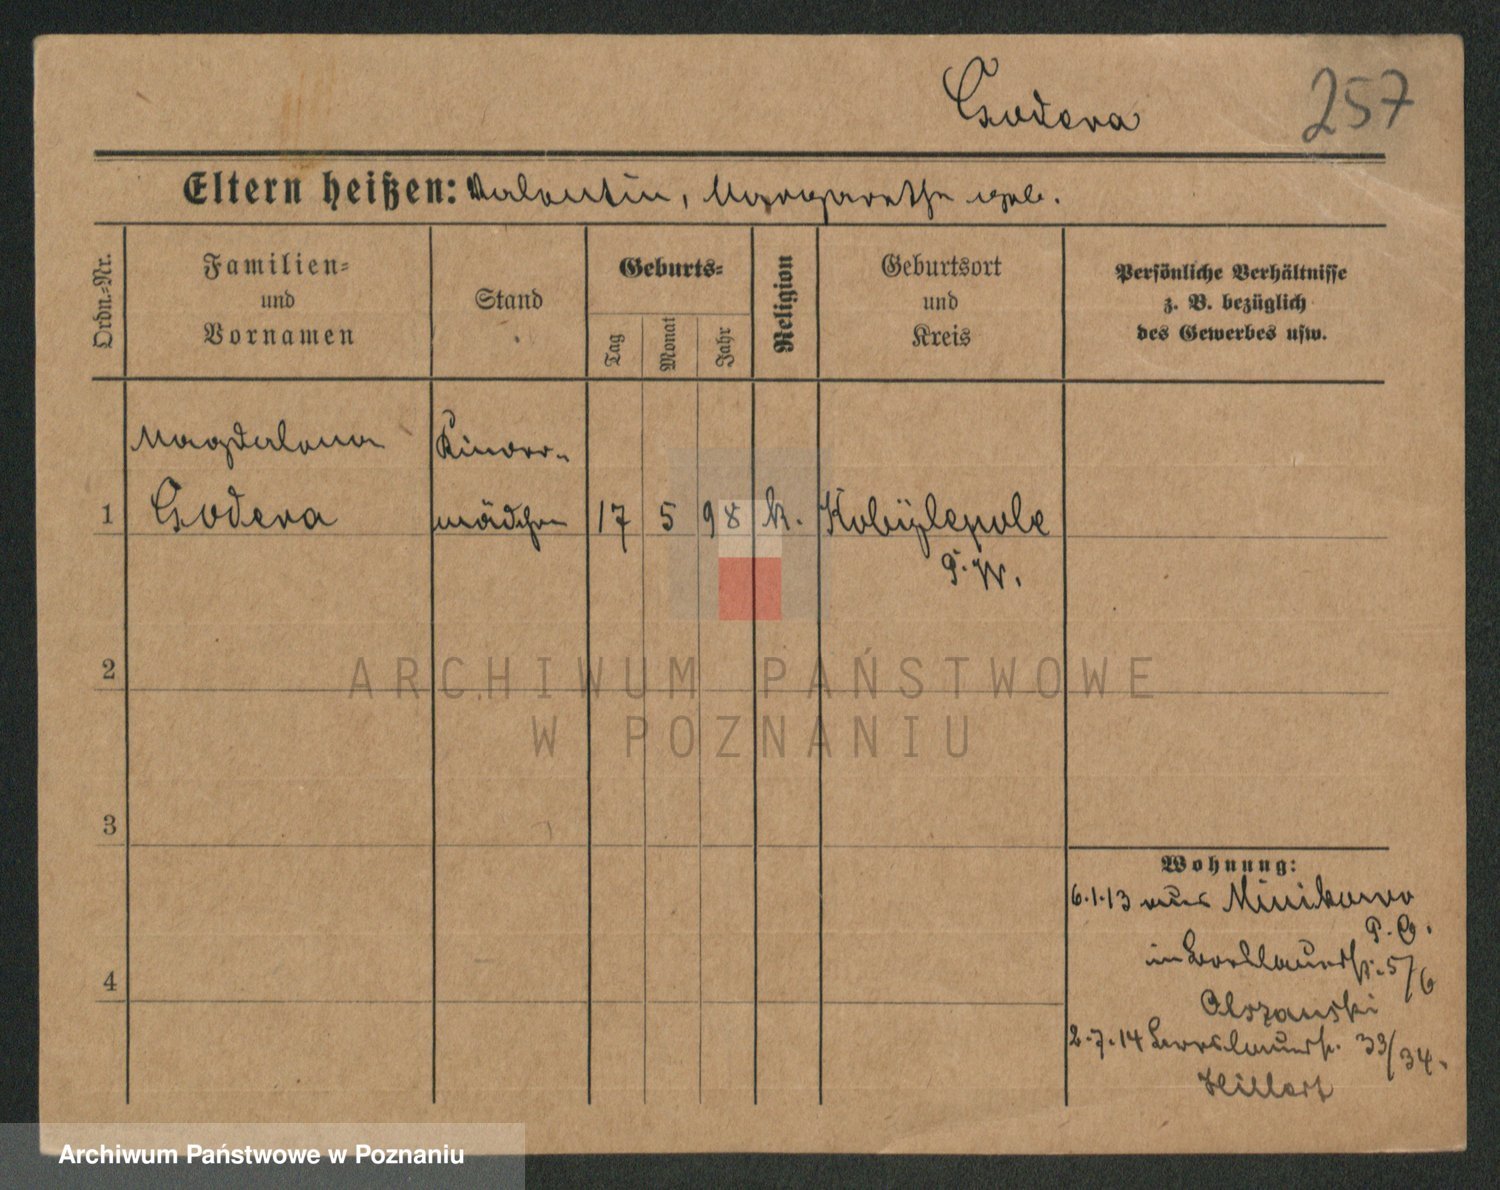 Godera
257
Eltern heißen: Valentin, Margarethe geb.
Ordn.-Nr.
Familien-
und
Vornamen
Stand
Geburts-
Tag
Monat
Jahr
Religion
Geburtsort
und
Kreis
Persönliche Verhältnisse
z. B. bezüglich
des Gewerbes usw.
Magdalena
Kinder-
1 Godera
mädchen 17 5 98 k. Kobylepole
P. W.
2
ARCHIWUM PAŃSTWOWE
W POZNANIU
3
4
Wohnung:
6.1.13 aus Minikowo
P. O.
in 5/6
Olszanski
2.7.14 33/34.
Hillert
Archiwum Państwowe w Poznaniu